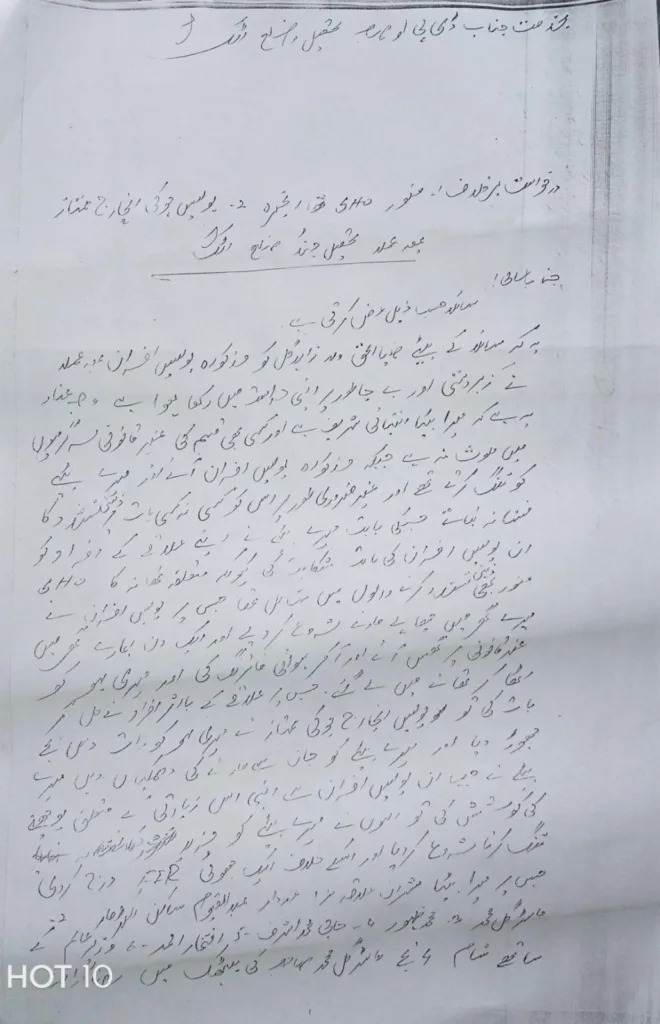 بخدمت جناب ڈی پی او صاحب تحصیل و ضلع اٹک
درخواست برخلاف 1۔ منور SHO تھانہ انجرہ 2۔ پولیس چوکی انچارج ممتاز
بمعہ عملہ تحصیل جنڈ ضلع اٹک
جناب عالی!
سائلہ حسب ذیل عرض کرتی ہے
یہ کہ سائلہ کے بیٹے ضیاء الحق ولد زاہد گل کو مذکورہ پولیس افسران بمعہ عملہ
نے زبردستی اور بے جا طور پر اپنی حراست میں رکھا ہوا ہے وجہ عناد
یہ ہے کہ میرا بیٹا انتہائی شریف ہے اور کسی بھی قسم کی غیر قانونی سرگرمیوں
میں ملوث نہ ہے جبکہ مذکورہ پولیس افسران آئے روز میرے بیٹے
کو تنگ کرتے تھے اور غیر ضروری طور پر اس کو کسی نہ کسی بات پر تشدد کا
نشانہ بناتے جسکی بابت میرے بیٹے نے اپنے علاقے کے افراد کو
ان پولیس افسران کی بابت شکایت کی کیونکہ متعلقہ تھانہ کا SHO
منور بھی تشدد کرنے والوں میں شامل تھا جس پر پولیس افسران نے
میرے گھر میں چھاپے مارنے شروع کر دیے اور ایک دن ہمارے گھر میں
غیر قانونی گھس آئے اور آکر ہوائی فائرنگ کی اور میری بہو کو
اٹھا کر تھانے میں لے گئے۔ جس پر علاقے کے بااثر افراد نے مل کر
بات کی تو پولیس انچارج چوکی ممتاز نے میری بہو کو رات دس بجے
چھوڑ دیا اور میرے بیٹے کو جان سے مارنے کی دھمکیاں دیں میرے
بیٹے نے جب ان پولیس افسران سے اپنی اس زیادتی کے متعلق پوچھنے
کی کوشش کی تو انہوں نے میرے بیٹے کو مزید
تنگ کرنا شروع کر دیا اور اسکے خلاف ایک جھوٹی FIR درج کر دی
جس پر میرا بیٹا مشران علاقہ 1۔ عبدالقیوم ساکن 2۔
ماسٹر گل محمد 3۔ محمد ظہور 4۔ حاجی محمد اشرف 5۔ افتخار احمد 6۔ وزیر عالم کے
ساتھ شام 4 بجے ماسٹر گل محمد کی بیٹھک میں
HOT 10